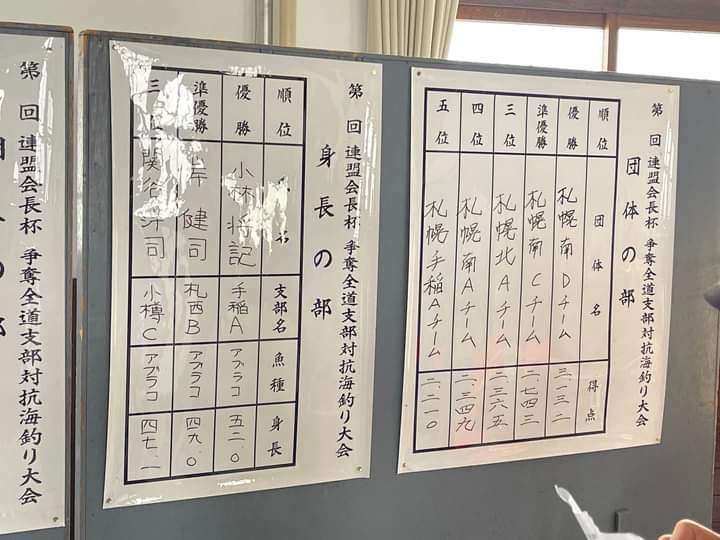 第 回 連盟会長杯 争奪全道支部対抗海釣り大会
団体の部
順位 団体名 得点
優勝 札幌南Dチーム 三.一三二
準優勝 札幌南Cチーム 二.七四三
三位 札幌北Aチーム 二.三六五
四位 札幌南Aチーム 二.三四九
五位 札幌手稲Aチーム 二.二一〇
第 回 連盟会長杯 争奪全道支部対抗海釣り大会
身長の部
順位 名 支部名 魚種 身長
優勝 小林 将記 手稲A アブラコ 五二.〇
準優勝 岸 健司 札西B アブラコ 四九.〇
三 関谷 洋司 小樽C アブラコ 四七.一
第 回 連盟会長杯 争奪全道支部対抗海釣り大会
の部